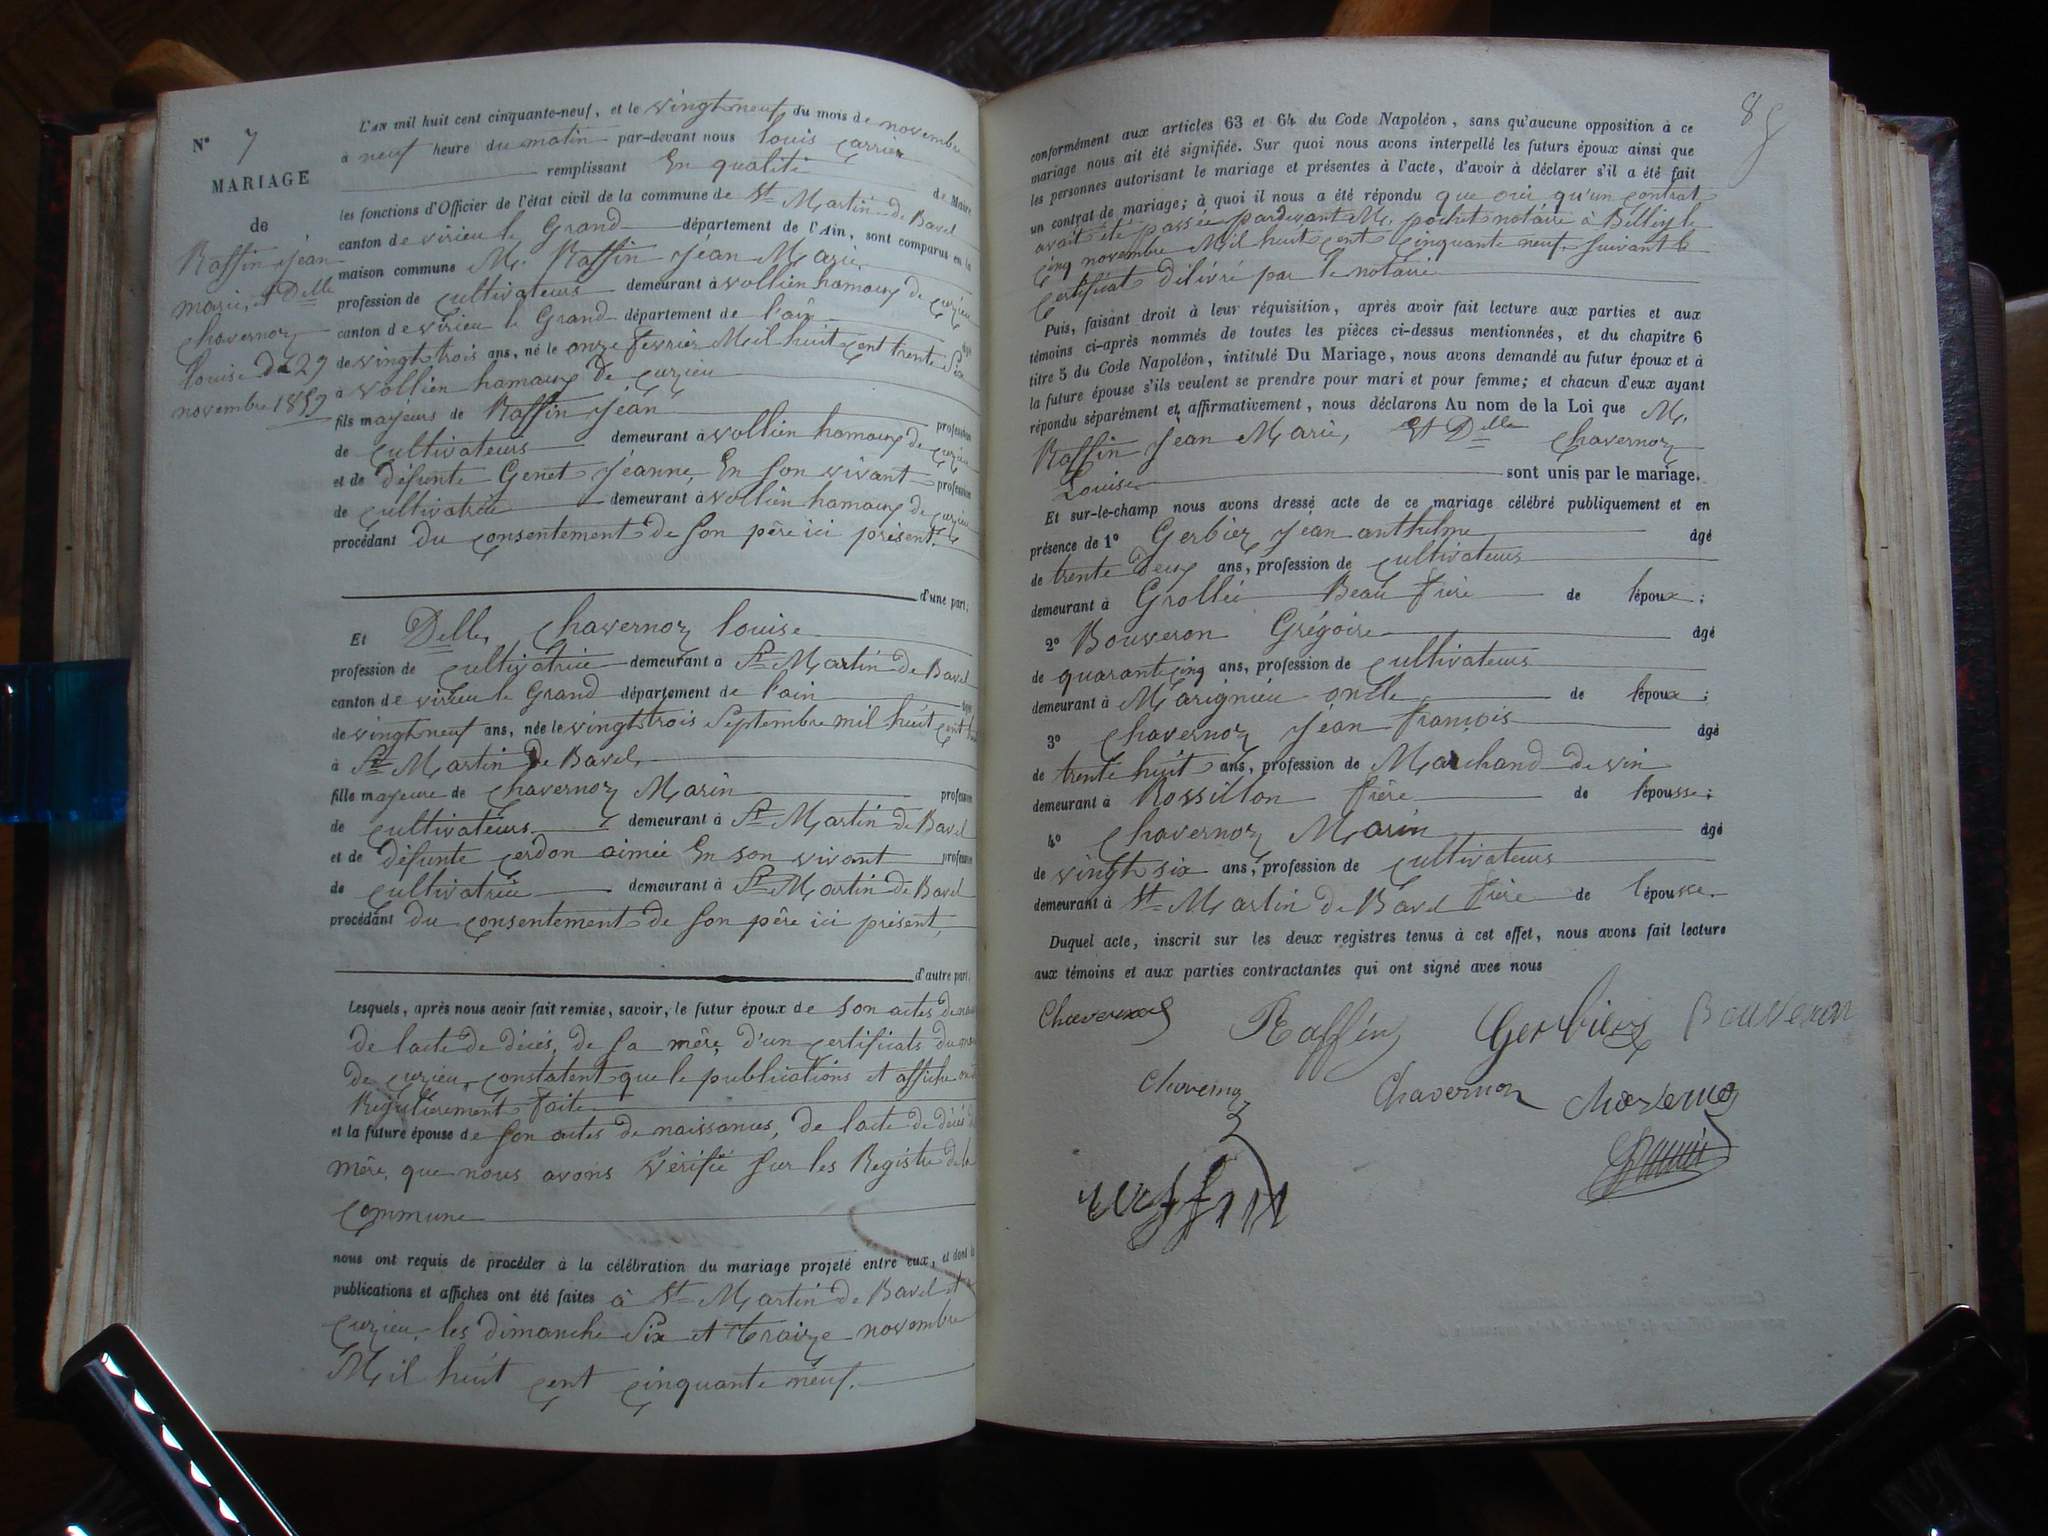 N° 7
MARIAGE
de
Raffin jéan
marie, et Delle
chavernoz
louise du 29
novembre 1859
L'AN mil huit cent cinquante-neuf, et le vingt neuf du mois de novembre
à neuf heure du matin par-devant nous louis carrier
remplissant En qualité de Maire
les fonctions d'Officier de l'état civil de la commune de St Martin de Bavel
canton de virieu le Grand département de l'Ain, sont comparus en la
maison commune M. Raffin jéan Marie
profession de cultivateurs demeurant à vollien hamaux de cuzieu
canton de virieu le Grand département de l'ain âgé
de vingt trois ans, né le onze fevrier Mil huit cent trente Six
à vollien hamaux de cuzieu
fils mayeurs de Raffin jéan profession
de cultivateurs demeurant à vollien hamaux de cuzieu
et de défunte Genet jéanne, En son vivant profession
de cultivatrice demeurant à vollien hamaux de cuzieu
procédant du consentement de son père ici présent.
d'une part;
Et Delle, chavernoz louise
profession de cultivatrice demeurant à St Martin de Bavel
canton de virieu le Grand département de l'ain âgée
de vingt neuf ans, née le vingt trois Septembre mil huit cent
à St Martin de Bavel
fille mayeure de chavernoz Marin profession
de cultivateurs demeurant à St Martin de Bavel
et de défunte cerdon aimée En son vivant profession
de cultivatrice demeurant à St Martin de Bavel
procédant du consentement de son père ici présent
d'autre part.
Lesquels, après nous avoir fait remise, savoir, le futur époux de son actes de
de lacte de décés, de sa mère, d'un certificats du
de cuzieu, constatent que le publications et affiche ont
Régulièrement faite
et la future épouse de son actes de naissances, de lacte de décés
mère, que nous avons vérifié sur les Registre de la
commune
nous ont requis de procéder à la célébration du mariage projeté entre eux, et dont la
publications et affiches ont été faites à St Martin de Bavel et
cuzieu, les dimanche Six et traize novembre
Mil huit cent cinquante neuf.
conformément aux articles 63 et 64 du Code Napoléon, sans qu'aucune opposition à ce
mariage nous ait été signifiée. Sur quoi nous avons interpellé les futurs époux ainsi que
les personnes autorisant le mariage et présentes à l'acte, d'avoir à déclarer s'il a été fait
un contrat de mariage; à quoi il nous a été répondu que oui qu'un contrat
avait été passée pardevant M. pochet notaire à Belley le
cinq novembre Mil huit cent cinquante neuf, suivant le
certificat délivré par le notaire
Puis, faisant droit à leur réquisition, après avoir fait lecture aux parties et aux
témoins ci-après nommés de toutes les pièces ci-dessus mentionnées, et du chapitre 6
titre 5 du Code Napoléon, intitulé Du Mariage, nous avons demandé au futur époux et à
la future épouse s'ils veulent se prendre pour mari et pour femme; et chacun d'eux ayant
répondu séparément et affirmativement, nous déclarons Au nom de la Loi que M.
Raffin jéan Marie, Et Delle chavernoz
Louise sont unis par le mariage.
Et sur-le-champ nous avons dressé acte de ce mariage célébré publiquement et en
présence de 1° Gerbiez jéan anthelme âgé
de trente deux ans, profession de cultivateurs
demeurant à Grollée Beau frère de lépoux;
2° Bouveron Grégoire âgé
de quarante cinq ans, profession de cultivateurs
demeurant à Marignieu oncle de lépoux;
3° chavernoz jéan françois âgé
de trente huit ans, profession de Marchand de vin
demeurant à Rossillon frère de lépousse;
4° chavernoz Marin âgé
de vingt six ans, profession de cultivateurs
demeurant à St Martin de Bavel frère de lépousse.
Duquel acte, inscrit sur les deux registres tenus à cet effet, nous avons fait lecture
aux témoins et aux parties contractantes qui ont signé avec nous
Raffin Gerbiez Bouveron
Chavernoz